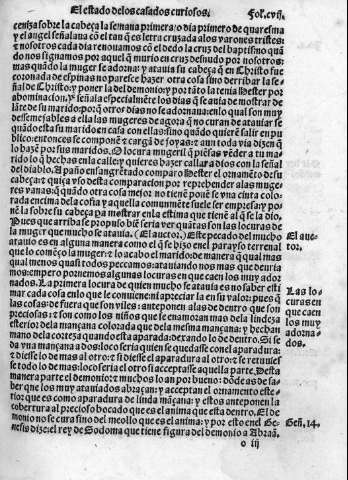 El estado delos casados curiosos. Fol. cvij.
ceniza sobre la cabeça la semana primera: o dia primero de quaresma
y el angel señalaua cõ el tau q̃ es letra cruzada alos varones tristes:
z nosotros cada dia renouamos cõ el dedo la cruz del baptismo quã
do nos signamos por aquel q̃ murio en cruz desnudo por nosotros:
mas quãdo la muger se adorna: y atauia su cabeça q̃ en Christo fue
coronada de espinas no paresce hazer otra cosa sino derribar la se-
ñal de Christo: y poner la del demonio: y por tãto la tenia Hester por
abominacion. Y señala especialmẽte los dias q̃ se auia de mostrar de
lãte de su marido: porq̃ otros dias no se adornaua: en lo qual son muy
dessemejables a ella las mugeres de agora q̃ no curan de ataviar se
quãdo esta su marido en casa con ellas: sino quãdo quierẽ salir en pu
blico: entonces se componẽ z cargã de joyas: z aun toda via dizen q̃
lo hazẽ por sus maridos. O locura muger q̃ piẽsas vẽder a tu ma-
rido lo q̃ hechas enla calle: y quieres hazer callar a Dios con la señal
del diablo. A paño ensangrẽtado comparo Hester el ornamẽto de su
cabeça: z quiça vso desta comparacion por reprehender alas muge-
res vanas: q̃ quãdo otra cosa mejor no tienẽ ponẽ se vna cinta colo-
rada encima dela cofia y aquella comunmẽte suele ser empresa: y po-
nẽ la sobre su cabeça pa mostrar enla estima que tienẽ al q̃ se la dio.
Pues que arriba se propuso biẽ seria ver quãtas son las locuras de
la muger que mucho se atauia. (El auctor.) Este pecado del mucho
atauio es en alguna manera como el q̃ se hizo enel parayso terrenal
que lo comẽço la muger: z lo acabo el marido: de manera q̃ qual mas
qual menos quasi todos peccamos: atauiando nos mas que deuria
mos: empero pornemos algunas locuras en que caen los muy ador
nados. La primera locura de quien mucho se atauia es no saber esti
mar cada cosa enlo que le conuiene: ni apreciar la en su valor: pues q̃
las cosas de fuera que son viles: anteponen alas de dentro que son
preciosas: z son como los niños que se enamoran mas dela lindeza
esterior dela mançana colorada que dela mesma mançana: y hechan
mano dela corteza quando esta aparada: dexando lo de dentro. Si se
da vna mançana a dos: loco seria quien se quedasse con el aparadura:
z diesse lo de mas al otro: z si diesse el aparadura al otro: z se retuuiesse
se todo lo de mas: loco seria el otro si acceptasse aquella parte. Desta
manera parte el demonio: z muchos lo an por bueno: dõde as de sa-
ber que los muy atauiados abraçan: y acceptan el ornamento este-
rior que es como aparadura de linda mãçana: y estos anteponen la
cobertura al precioso bocado que es el anima que esta dentro. El de
monio no se cura sino del meollo que es el anima: y por esto enel Ge-
nesis dize: el rey de Sodoma que tiene figura del demonio a Abraã.
El auc-
tor.
Las lo
curas en
que caen
los muy
adorna-
dos.
Geñ. 14.
o iij